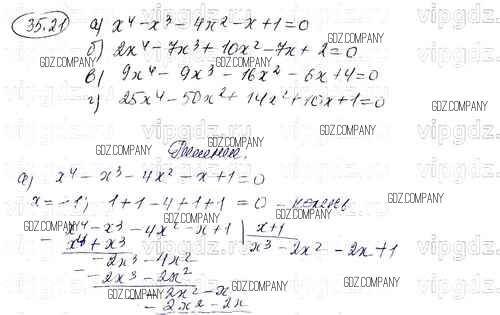 35.21 а) x⁴-x³-4x²-x+1=0
б) 2x⁴-7x³+10x²-7x+2=0
в) 9x⁴-9x³-16x²-6x+4=0
г) 25x⁴-50x²+14x²+10x+1=0
Решение.
а) x⁴-x³-4x²-x+1=0
x=-1; 1+1-4+1+1=0 - корень
x⁴-x³-4x²-x+1 | x+1
x⁴+x³ x³-2x²-2x+1
-2x³-4x²
-2x³-2x²
-2x²-x
-2x²-2x